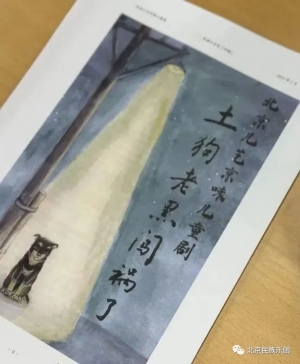 北京儿艺京味儿童剧
土狗老黑闯祸了
北京民族乐团